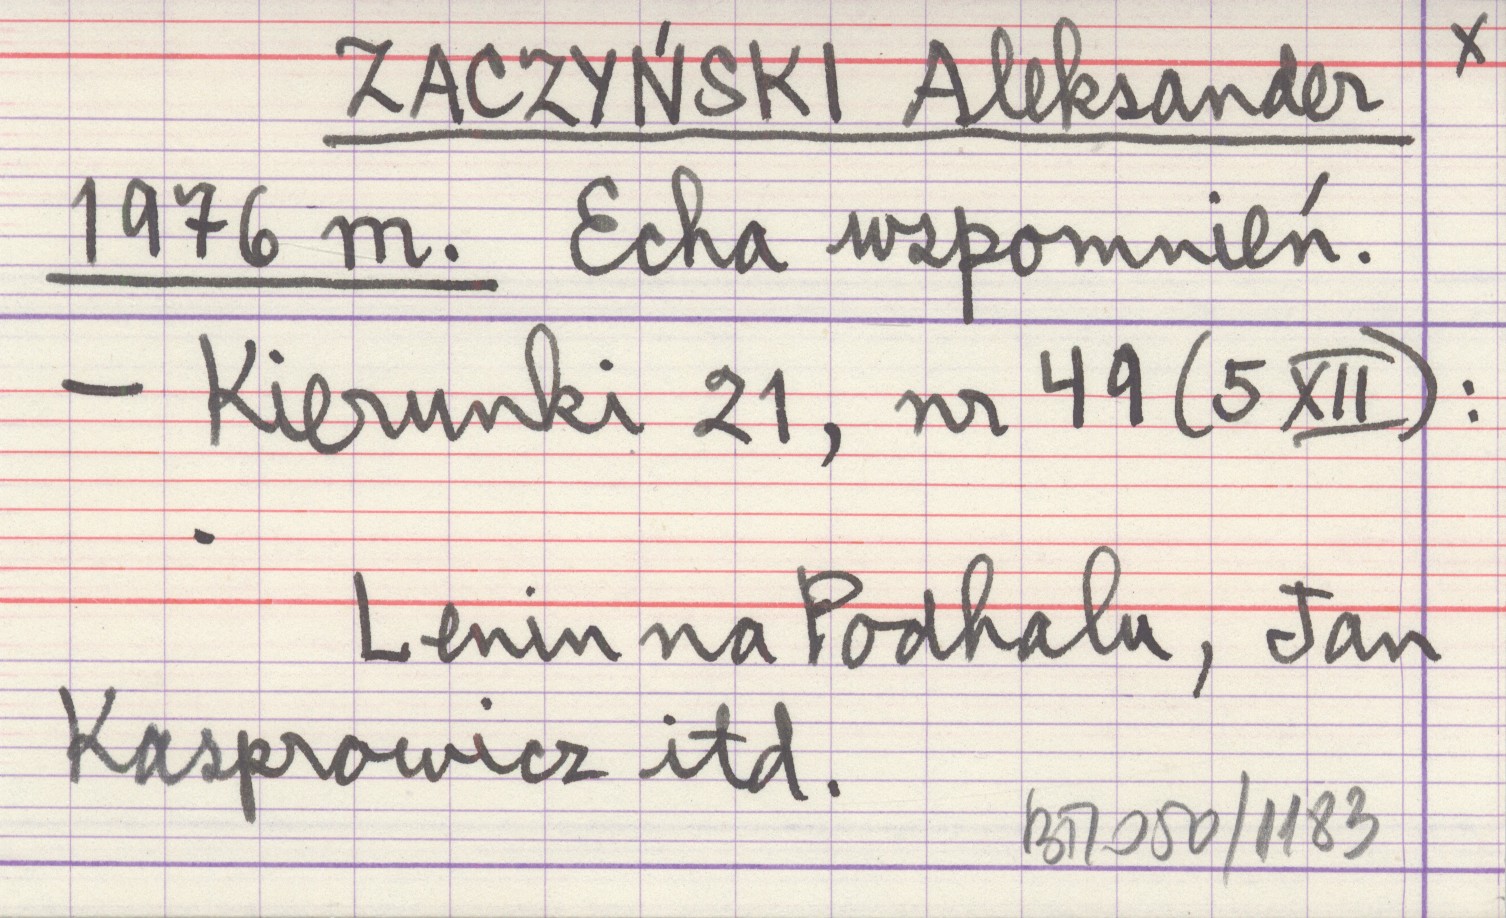 ZACZYŃSKI Aleksander x
1976 m. Echa wspomnień.
– Kierunki 21, nr 49 (5 XII):
.
Lenin na Podhalu, Jan
Kasprowicz itd.
050/1183